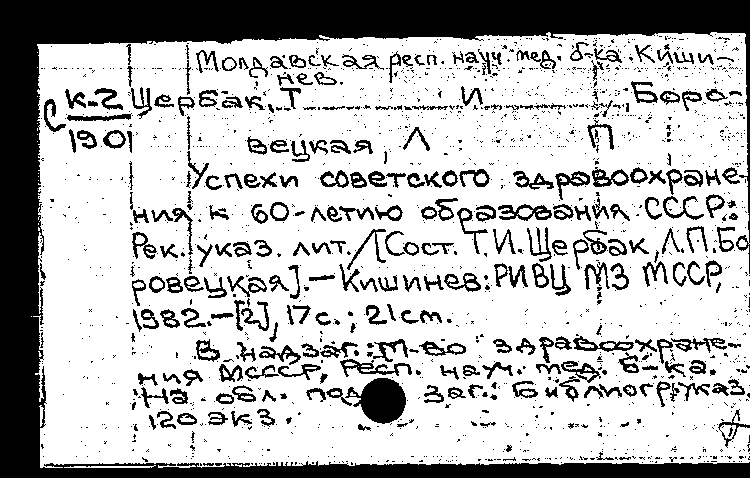 Молдавская респ. науч. мед. б-ка. Киши-
нев.
С К-2 Щербак, Т И , Боро-
1901
вецкая, Л П
Успехи советского здравоохране-
ния к 60-летию образования СССР:
Рек. указ. лит. /[Сост. Т.И. Щербак, Л.П. Бо
ровецкая]. — Кишинев: РИВЦ МЗ МССР,
1982. — [2], 17 с. ; 21 см.
В надзаг.: М-во здравоохране-
ния МСССР, Респ. науч. мед. б-ка.
На обл. под заг.: Библиогр. указ.
120 экз.